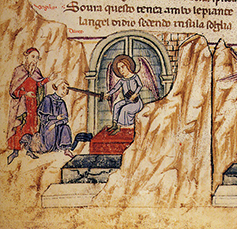 Soura questo tenea ambo le piante
langel didio sedendo in su la soglia